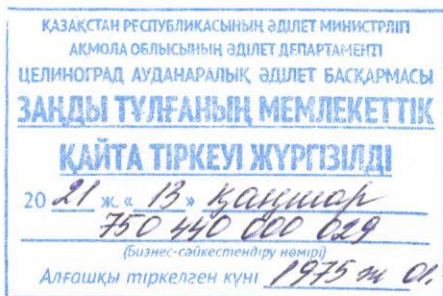 ҚАЗАҚСТАН РЕСПУБЛИКАСЫНЫҢ ӘДІЛЕТ МИНИСТРЛІГІ
АҚМОЛА ОБЛЫСЫНЫҢ ӘДІЛЕТ ДЕПАРТАМЕНТІ
ЦЕЛИНОГРАД АУДАНАРАЛЫҚ ӘДІЛЕТ БАСҚАРМАСЫ
ЗАҢДЫ ТҰЛҒАНЫҢ МЕМЛЕКЕТТІК
ҚАЙТА ТІРКЕУІ ЖҮРГІЗІЛДІ
20 21 ж. « 13 » қаңтар
750 440 000 029
(бизнес-сәйкестендіру нөмірі)
Алғашқы тіркелген күні 1975 ж 01.